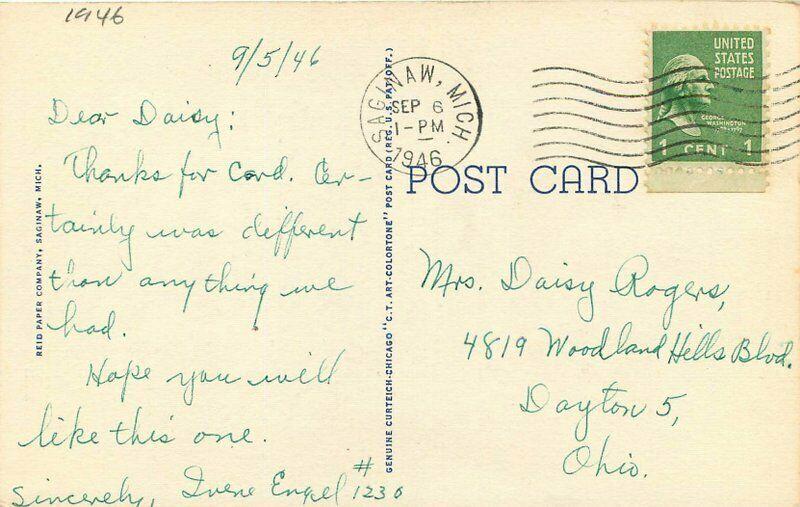 1946
9/5/46
Dear Daisy:
Thanks for Card. Cer-
tainly was different
than anything we
had.
Hope you will
like this one.
Sincerely, Irene Engel #1230
REID PAPER COMPANY, SAGINAW, MICH.
GENUINE CURTEICH-CHICAGO "C.T. ART-COLORTONE" POST CARD (REG. U.S. PAT. OFF.)
SAGINAW, MICH.
SEP 6
1-PM
1946
UNITED
STATES
POSTAGE
GEORGE
WASHINGTON
1 CENT 1
POST CARD
Mrs. Daisy Rogers,
4819 Woodland Hills Blvd.
Dayton 5,
Ohio.